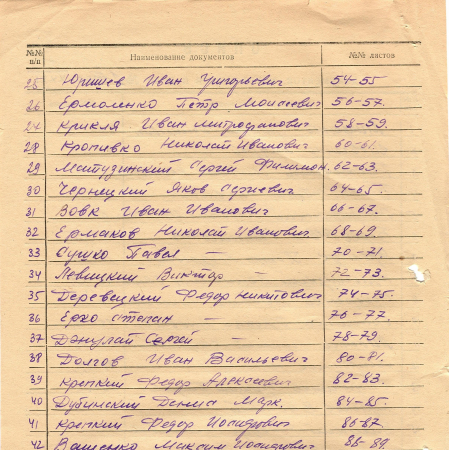 №№ п/п Наименование документов №№ листов
25 Юришев Иван Григорьевич 54-55
26 Ермоленко Петр Моисеевич 56-57.
27 Крикля Иван Митрофанович 58-59.
28 Кропивко Николай Иванович 60-61.
29 Матузинский Сергей Филимон. 62-63.
30 Чернецкий Яков Сергиевич 64-65.
31 Вовк Иван Иванович 66-67.
32 Ермаков Николай Иванович 68-69.
33 Сушко Павел — 70-71.
34 Левицкий Виктор — 72-73.
35 Деревецкий Федор Никитович 74-75.
36 Ерхо Степан — 76-77.
37 Сергей — 78-79.
38 Долгов Иван Васильевич 80-81.
39 Крепкий Федор Алексеевич 82-83.
40 Дубинский Марк. 84-85.
41 Крепкий Федор Иосифович 86-87.
42 Ващенко Максим Иосифович 88-89.